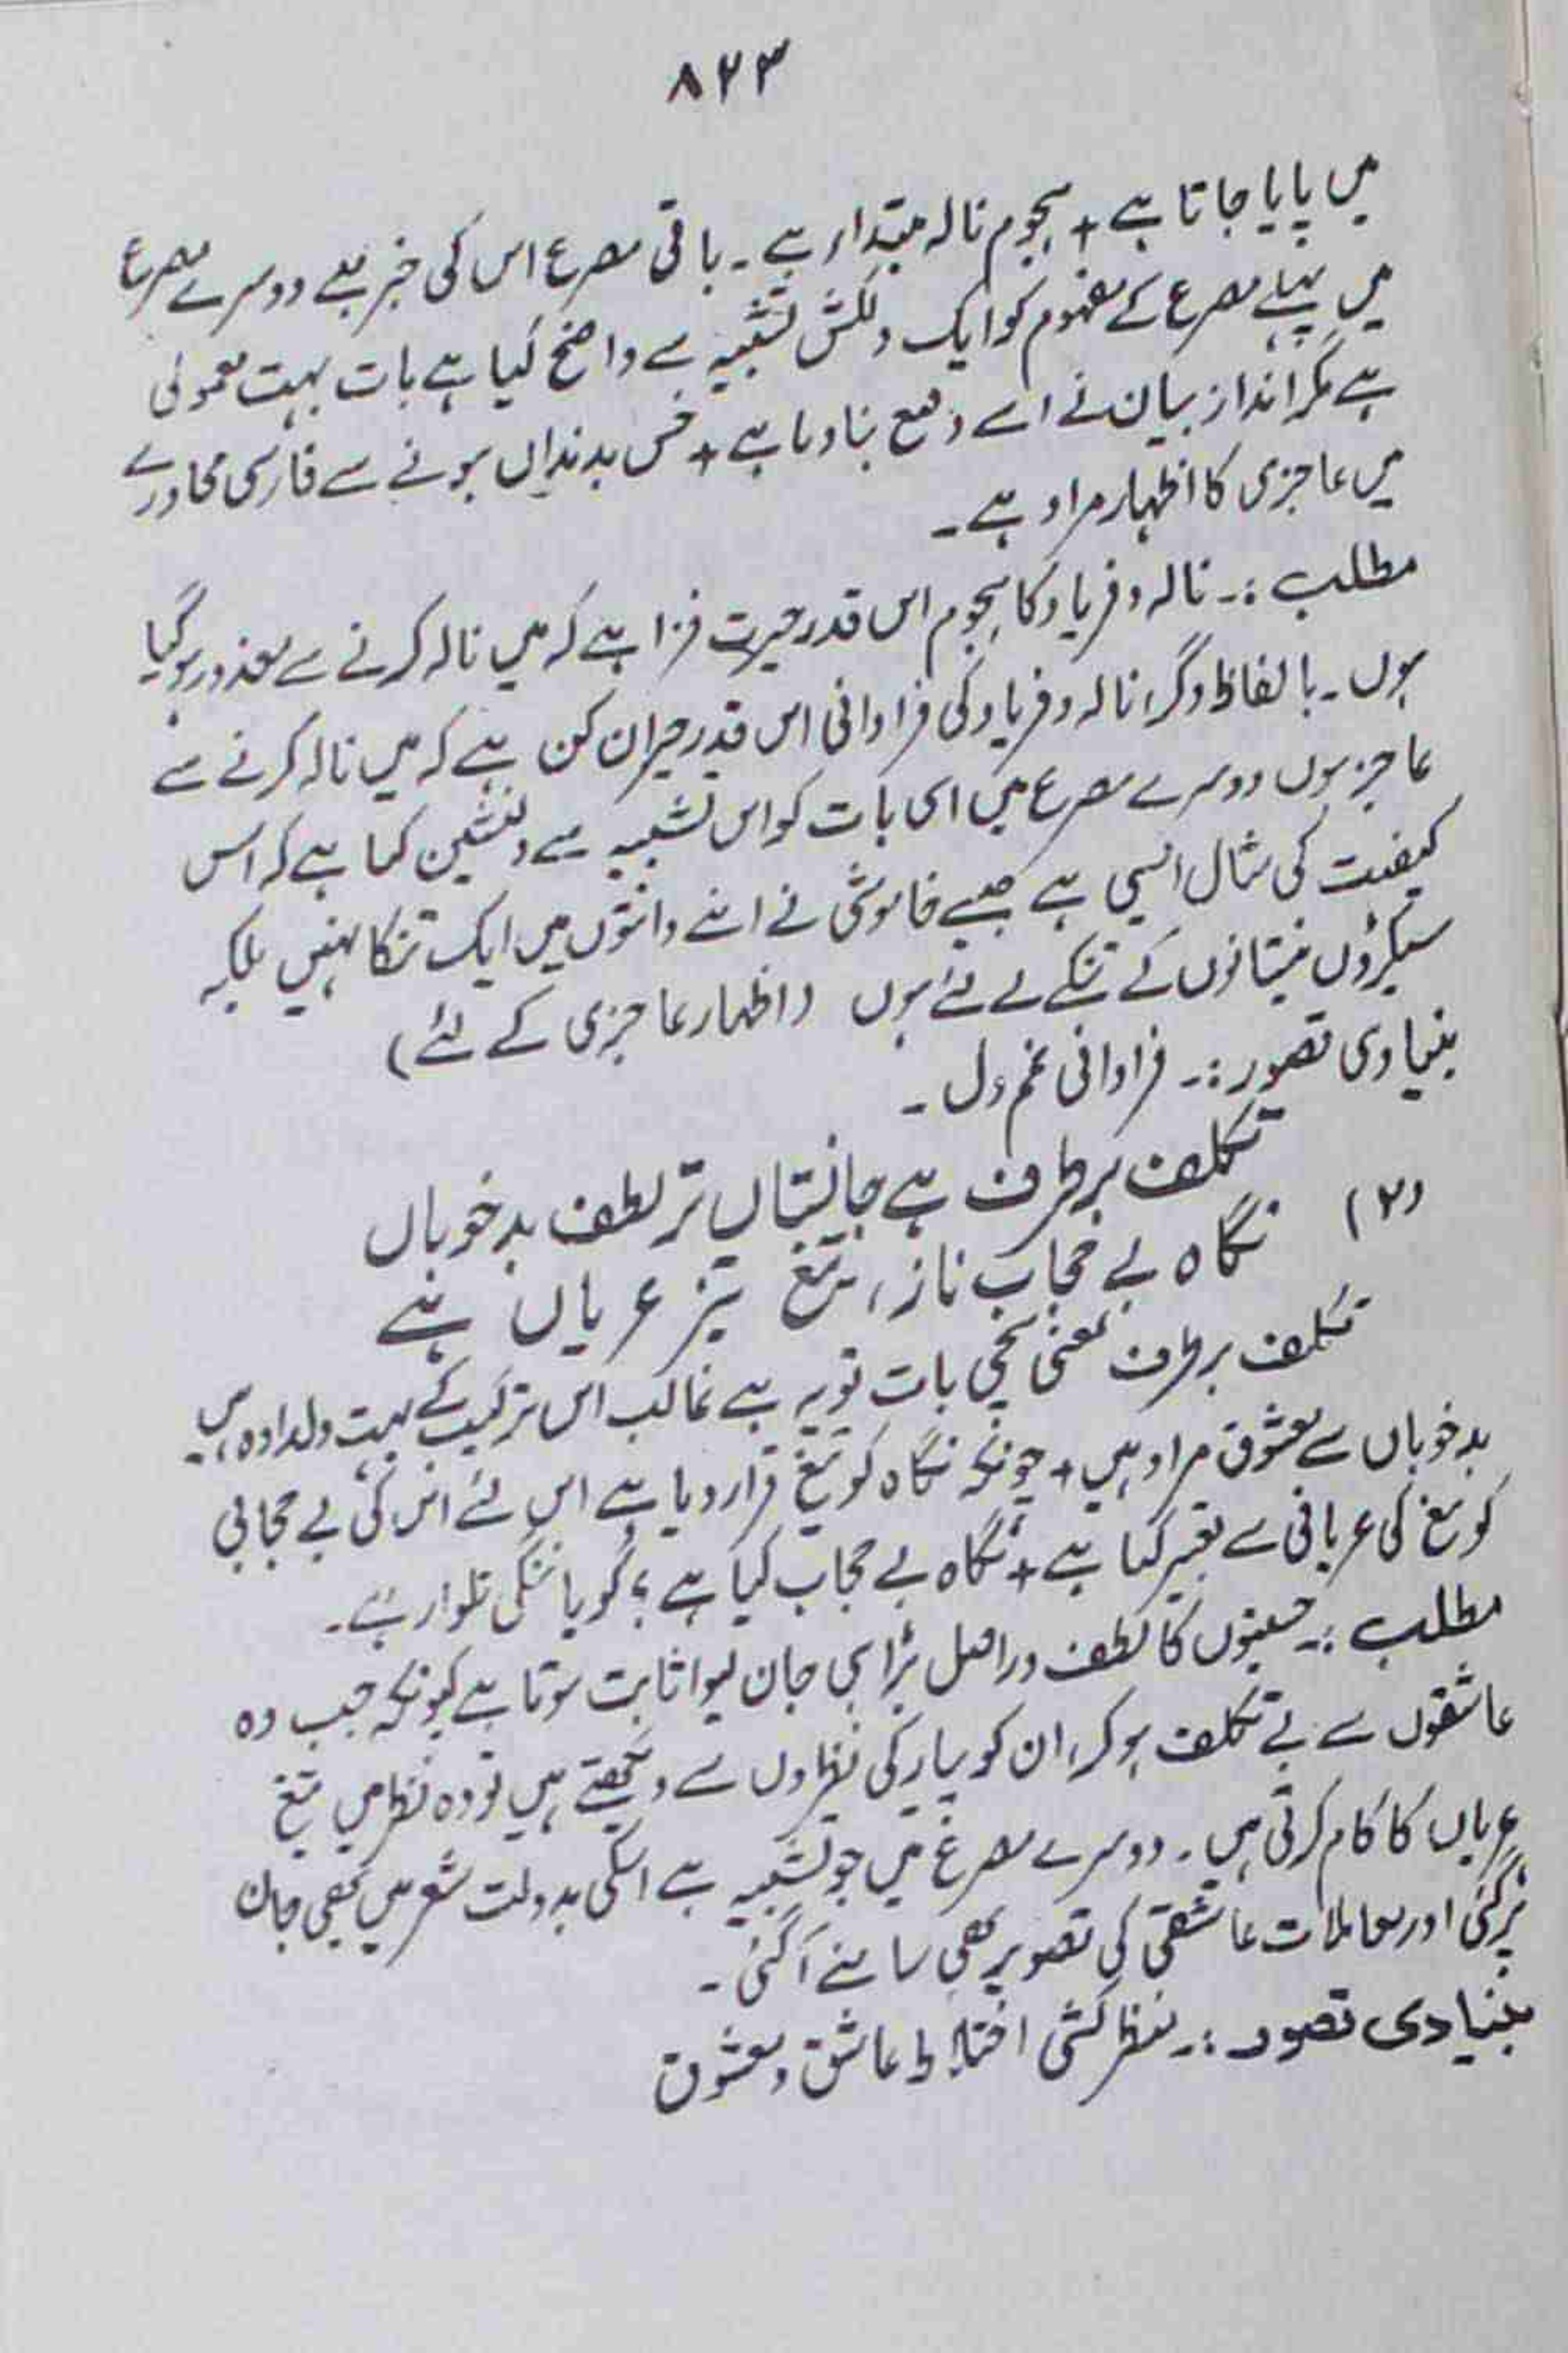 ۸۲۳
میں پایا جاتا ہے + ہجوم نالہ مبتدا، ہے ۔ باقی مصرع اس کی خبر ہے دوسرے مصرع
میں پہلے مصرع کے مفہوم کو ایک دلکش تشبیہ سے واضح کیا ہے بات بہت معمولی
ہے مگر انداز بیان نے اسے وقیع بنا دیا ہے + خس بدنداں ہونے سے فارسی محاورے
میں عاجزی کا اظہار مراد ہے ۔
مطلب :۔ نالہ و فریاد کا ہجوم اس قدر حیرت فزا ہے کہ میں نالہ کرنے سے معذور ہوگیا
ہوں ۔ بالفاظ دگر، نالہ و فریاد کی فراوانی اس قدر حیران کن ہے کہ میں نالہ کرنے سے
عاجز ہوں دوسرے مصرع میں اسی بات کو اس تشبیہ سے دلنشین کیا ہے کہ اس
کیفیت کی مثال ایسی ہے جیسے خاموشی نے اپنے دانتوں میں ایک تنکا نہیں بلکہ
سیکڑوں نیستانوں کے تنکے لے لئے ہوں (اظہار عاجزی کے لئے)
بنیادی تصور :۔ فراوانی غم دل ۔
(۲) تکلف برطرف ہے جانستاں تر لطف بدخوباں
نگاہ بے حجاب ناز، تیغ تیز عریاں ہے
تکلف برطرف بمعنی سچی بات تو یہ ہے غالب اس ترکیب کے بہت دلدادہ ہیں
بدخوباں سے معشوق مراد ہیں + چونکہ نگاہ کو تیغ قرار دیا ہے اس لئے اس کی بے حجابی
کو تیغ کی عریانی سے تعبیر کیا ہے + نگاہ بے حجاب کیا ہے ؟ گویا ننگی تلوار ہے ۔
مطلب :۔ حسینوں کا لطف دراصل بڑا ہی جان لیوا ثابت ہوتا ہے کیونکہ جب وہ
عاشقوں سے بے تکلف ہوکر، ان کو پیار کی نظروں سے دیکھتے ہیں تو وہ نظریں تیغ
عریاں کا کام کرتی ہیں ۔ دوسرے مصرع میں جو تشبیہ ہے اسکی بدولت شعر میں بھی جان
پڑ گئی اور معاملات عاشقی کی تصویر بھی سامنے آگئی ۔
بنیادی تصور :۔ منظر کشی اختلاط عاشق و معشوق